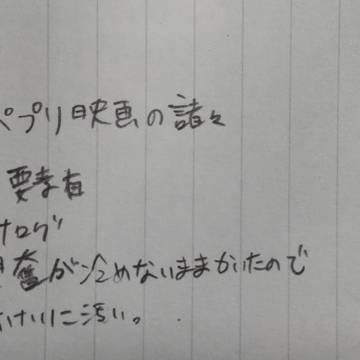 ペプリ映画の諸々
要孝有
ナログ
奮が冷めないままかいたので
けいに汚い。